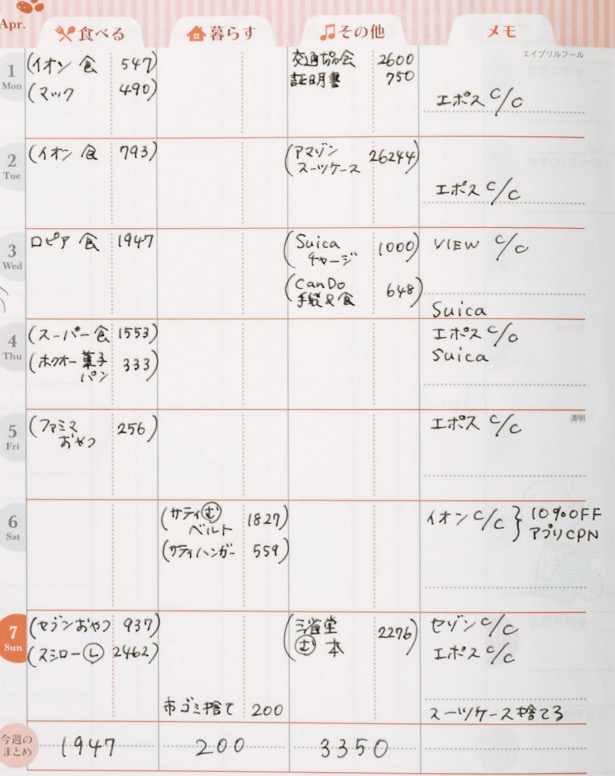 Apr.
食べる 暮らす その他 メモ
1 Mon
(イオン 食 547)
(マック 490)
交通協会 2600
証明書 750
エイプリルフール
エポス C/C
2 Tue
(イオン 食 793)
(アマゾン
スーツケース 26244)
エポス C/C
3 Wed
ロピア 食 1947
(Suica
チャージ 1000)
(CanDo
手袋&食 648)
VIEW C/C
Suica
4 Thu
(スーパー食 1553)
(ホクオー菓子
パン 333)
エポス C/C
Suica
5 Fri
(ファミマ
おやつ 256)
清明
エポス C/C
6 Sat
(サティ む
ベルト 1827)
(サティハンガー 559)
イオン C/C } 10%OFF
アプリCPN
7 Sun
(セブンおやつ 937)
(スシロー L 2462)
市ゴミ捨て 200
(三省堂
む 本 2276)
セゾン C/C
エポス C/C
スーツケース捨てろ
今週の
まとめ
1947 200 3350